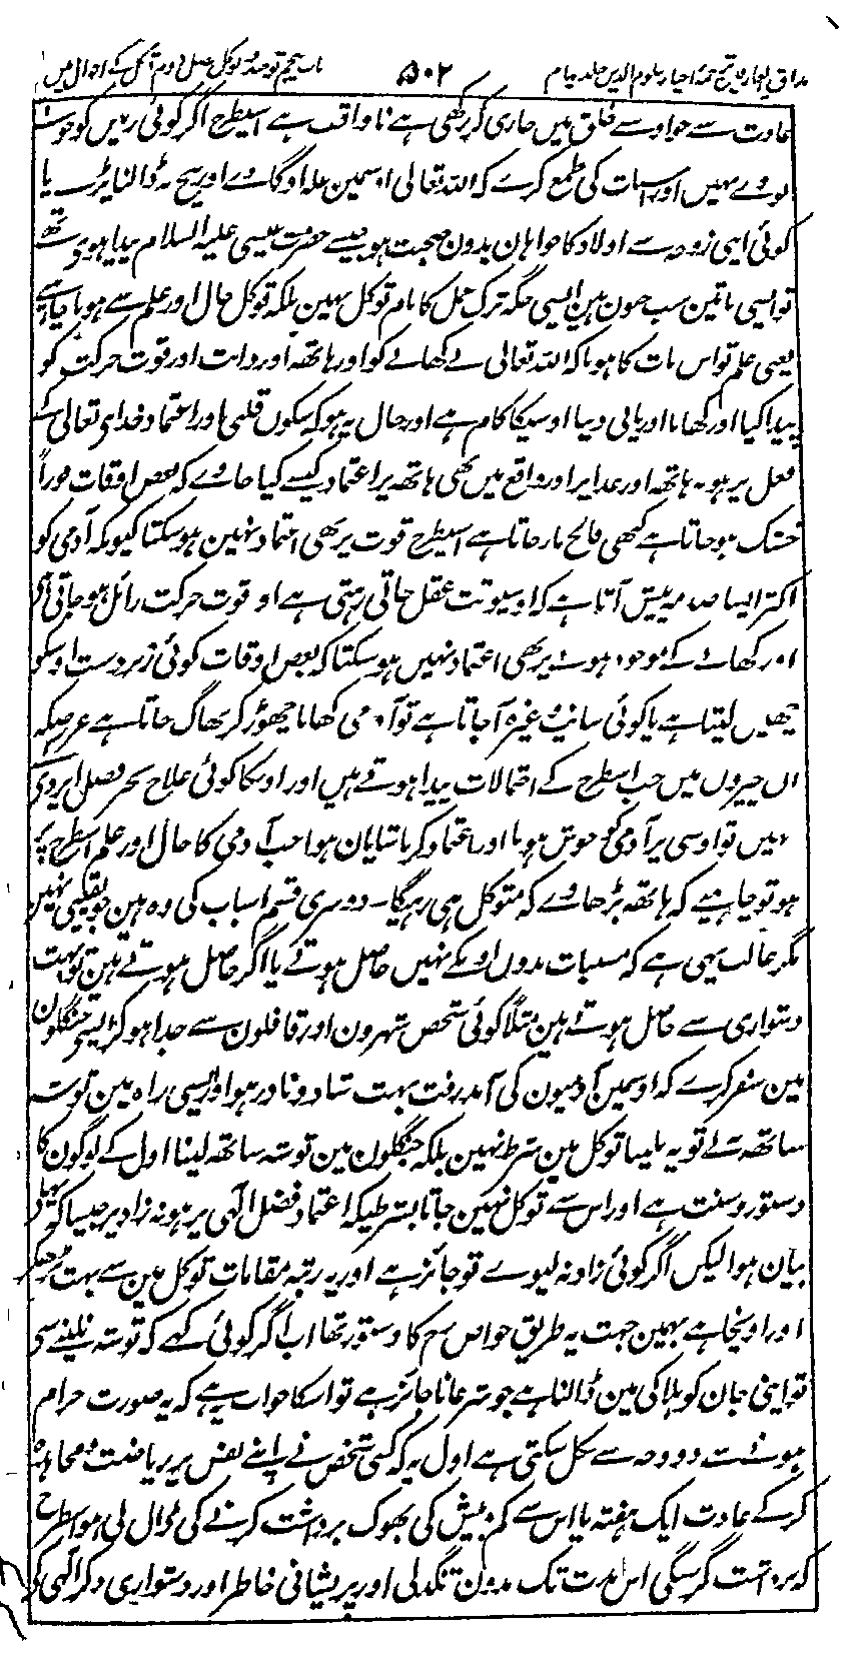 مذاق العارفین ترجمہ احیاء علوم الدین جلد چہارم ۵۰۲ باب پنجم توحید و توکل فصل دوم توکل کے احوال میں
عادت سے جو اوسنے خلق میں جاری کر رکھی ہے ناواقف ہے اسیطرح اگر کوئی زمین کو جوتے
بووے نہیں اور اسبات کی طمع کرے کہ اللہ تعالی اوسمین غلہ اوگادے اور بیج نہ ڈالنا پڑے یا
کوئی اپنی زوجہ سے اولاد کا خواہان بدون صحبت ہو جیسے حضرت عیسی علیہ السلام پیدا ہوی تھے
تو ایسی باتین سب جنون ہین ایسی جگہ ترک عمل کا نام توکل نہین بلکہ توکل حال اور علم سے ہونا چاہیے
یعنی علم تو اس بات کا ہو نا کہ اللہ تعالی نے کھانے کو اور ہاتھہ اور دانت اور قوت حرکت کو
پیدا کیا اور کھانا اور پانی دینا اوسیکا کام ہے اور حال یہ ہو کہ سکون قلبی اور اعتماد خدای تعالی کے
فعل پر ہو نہ ہاتھہ اور غذا پر اور واقع میں بھی ہاتھہ پر اعتماد کیسے کیا جاوے کہ بعض اوقات فوراً
خشک ہو جاتا ہے کبھی فالج مار جاتا ہے اسیطرح قوت پر بھی اعتماد نہین ہو سکتا کیونکہ آدمی کو
اکثر ایسا صدمہ پیش آتا ہے کہ اوسیوقت عقل جاتی رہتی ہے اور قوت حرکت زائل ہو جاتی ہے
اور کھانے کے موجود ہونے پر بھی اعتماد نہیں ہو سکتا کہ بعض اوقات کوئی زبردست اوسکو
چھین لیتا ہے یا کوئی سانپ وغیرہ آ جاتا ہے تو آدمی کھانا چھوڑ کر بھاگ جاتا ہے غرضیکہ
ان چیزوں میں جب اسطرح کے احتمالات پیدا ہوتے ہیں اور اوسکا کوئی علاج بجز فضل ایزدی کے
نہیں تو اوسی پر آدمی کو خوش ہونا اور اعتماد کرنا شایان ہوا جب آدمی کا حال اور علم اسطرح پر
ہو تو چاہیے کہ ہاتھہ بڑھاوے کہ متوکل ہی رہیگا۔ دوسری قسم اسباب کی وہ ہین جو یقینی نہین
مگر غالب یہی ہے کہ مسببات بدون اونکے نہیں حاصل ہوتے یا اگر حاصل ہوتے ہین تو بہت
دشواری سے حاصل ہوتے ہین مثلاً کوئی شخص شہرون اور قافلون سے جدا ہو کر ایسے جنگلون
مین سفر کرے کہ اوسمین آدمیون کی آمد رفت بہت شاذ و نادر ہو اور ایسی راہ مین توشہ
ساتھہ نہ لے تو یہ نہ لینا توکل مین شرط نہین بلکہ جنگلون مین توشہ ساتھہ لینا اول کے لوگون کا
دستور و سنت ہے اور اس سے توکل نہین جاتا بشرطیکہ اعتماد فضل الہی پر ہو نہ زاد پر جیسا کہ پہلے
بیان ہوا لیکن اگر کوئی زاد نہ لیوے تو جائز ہے اور یہ رتبہ مقامات توکل مین سے بہت بڑھکر
اور اونچا ہے بہین جہت یہ طریق خواص رح کا دستور تھا اب اگر کوئی کہے کہ توشہ نہ لینے سے
تو اپنی جان کو ہلاکی مین ڈالنا ہے جو شرعا ناجائز ہے تو اسکا جواب یہ ہے کہ یہ صورت حرام
ہونے سے دو وجہ سے نکل سکتی ہے اول یہ کہ کسی شخص نے اپنے نفس پر ریاضت و مجاہدہ
کر کے عادت ایک ہفتہ یا اس سے کم و بیش کی بھوک برداشت کرنے کی ڈال لی ہو اسطرح
کہ برداشت گرسنگی اس مدت تک بدون تنگدلی اور پریشانی خاطر اور دشواری ذکر الہی کے